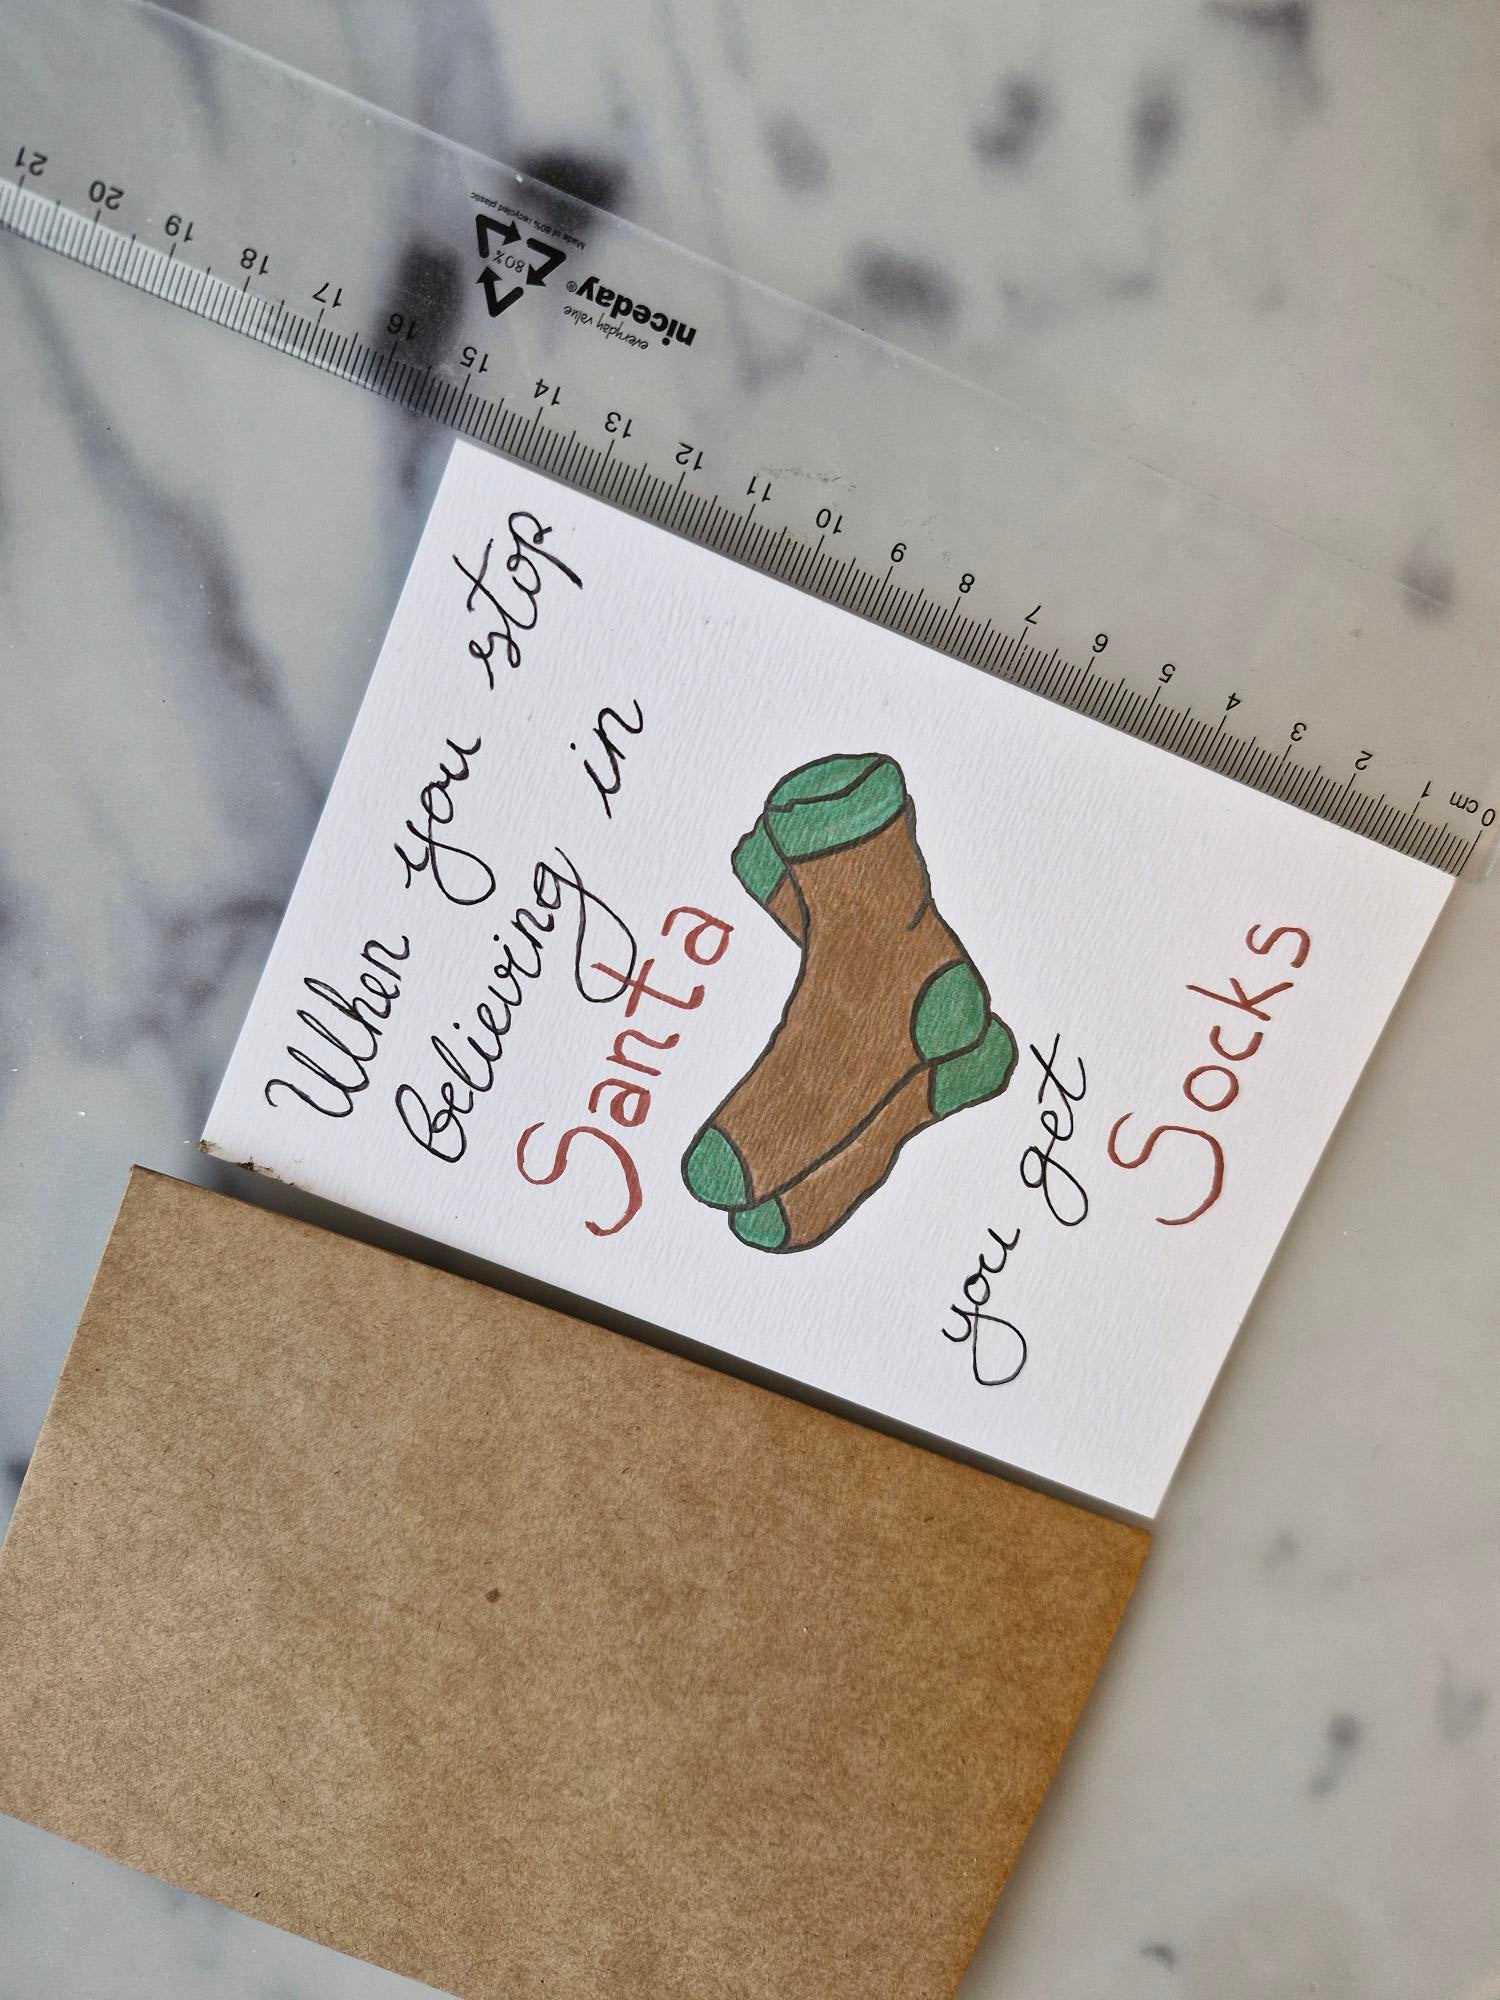 When you stop
believing in
Santa
you get
Socks
0 cm 1 2 3 4 5 6 7 8 9 10 11 12 13 14 15 16 17 18 19 20 21
niceday®
everyday value
80%
Made of 80% recycled plastic